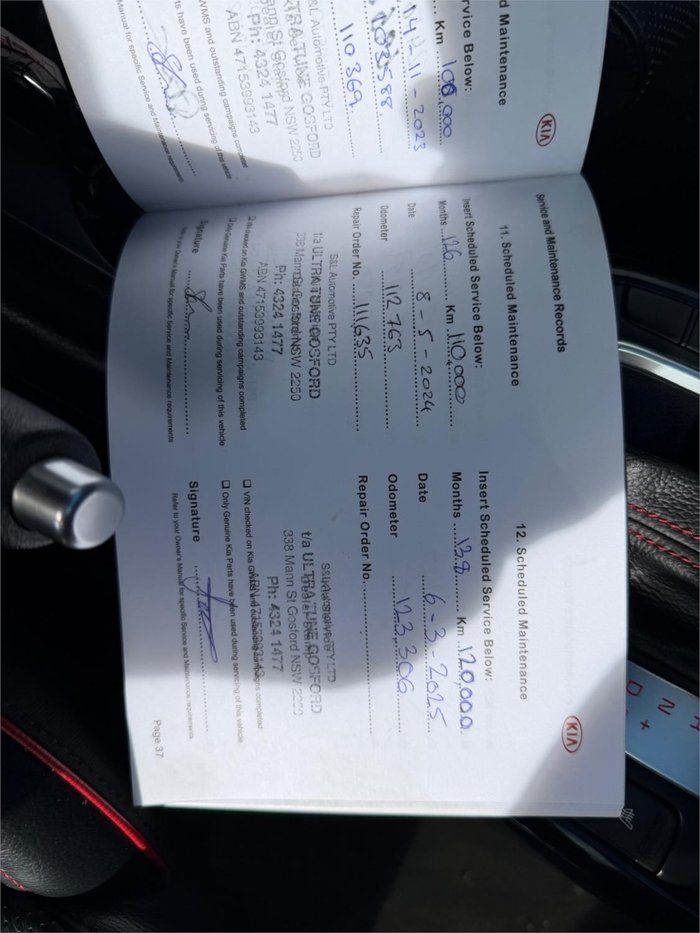 d Maintenance
rvice Below:
Km 100,000
14.11-2023
103588
110369
S&L Automotive PTY LTD
LTRA TUNE GOSFORD
Gosford NSW 2250
Ph: 4324 1477
ABN 47153993143
WMS and outstanding campaigns completed
ts have been used during servicing of this vehicle
Manual for specific Service and Maintenance requirements
KIA
Service and Maintenance Records
11. Scheduled Maintenance
Insert Scheduled Service Below:
Months 126 Km 110,000
Date 8-5-2024
Odometer 112763
Repair Order No. 111635
S&L Automotive PTY LTD
t/a ULTRA TUNE GOSFORD
338 Mann St Gosford NSW 2250
Ph: 4324 1477
ABN 47153993143
VIN checked on Kia GWMS and outstanding campaigns completed
Only Genuine Kia Parts have been used during servicing of this vehicle
Signature
Refer to your Owner's Manual for specific Service and Maintenance requirements
KIA
12. Scheduled Maintenance
Insert Scheduled Service Below:
Months 138 Km 120,000
Date 6-3-2025
Odometer 123,306
Repair Order No.
t/a ULTRA TUNE GOSFORD
338 Mann St Gosford NSW 2250
Ph: 4324 1477
VIN checked on Kia GWMS and outstanding campaigns completed
Only Genuine Kia Parts have been used during servicing of this vehicle
Signature
Refer to your Owner's Manual for specific Service and Maintenance requirements
Page 37
N
D +